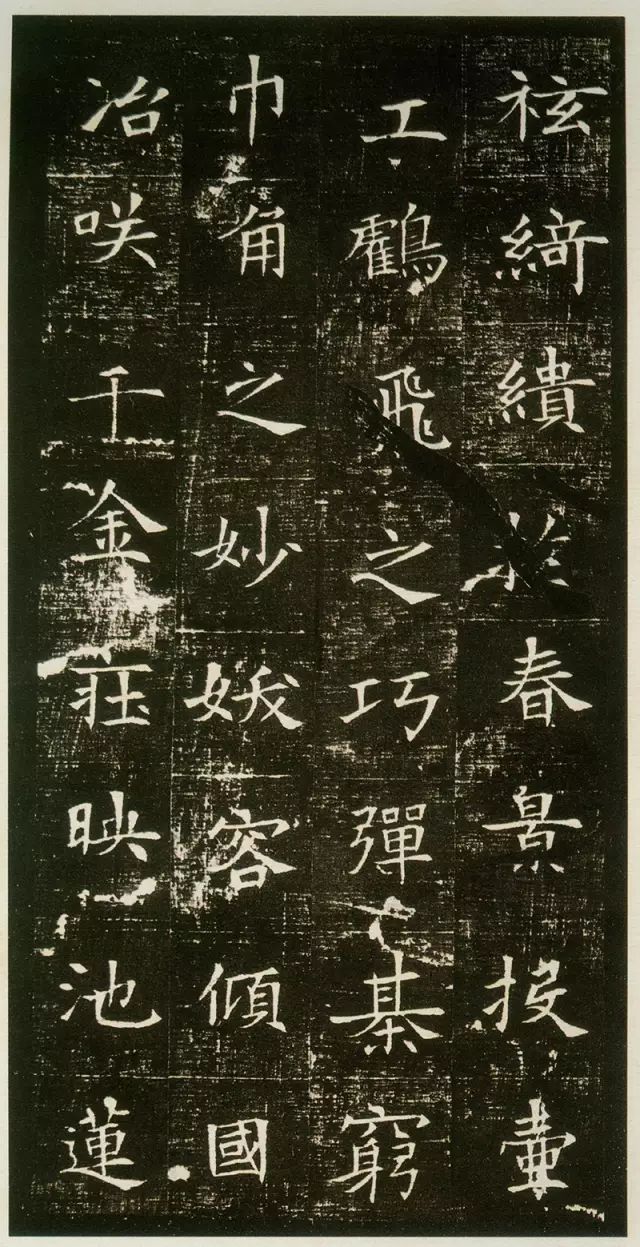 袨綺繢於春景投壺
工鸖飛之巧彈棊窮
巾角之妙娥容傾國
冶咲千金莊映池蓮